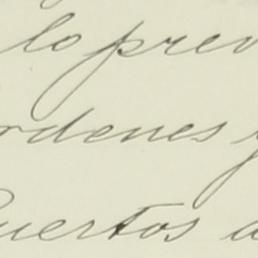 lo prev
rdenes y
uertos a